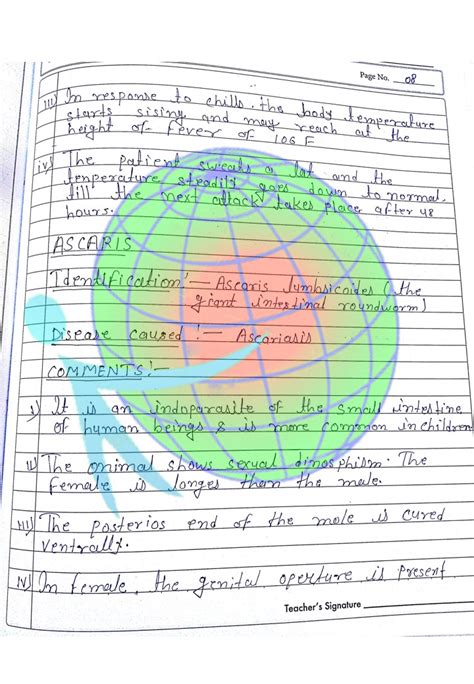 Page No. 08
iii) In response to chills, the body temperature
starts sising and may reach at the
height of fever of 106 F
iv) The patient sweats a lot and the
temperature steadily goes down to normal,
till the next attack takes place after 48
hours.
ASCARIS
Identification:- Ascaris lumbsicoides (the
giant intestinal roundworm)
Disease caused :- Ascariasis
COMMENTS:-
i) It is an indoparasite of the small intestine
of human beings & is more common in children
ii) The animal shows sexual dimosphism. The
female is longes than the male.
iii) The posterios end of the male is cured
ventrally.
iv) In female, the genital aperture is present
Teacher's Signature